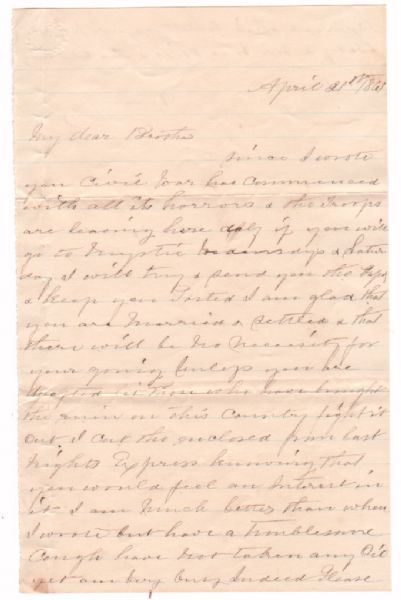 April 21st 1861
My dear Brother
Since I wrote
you Civil War has Commenced
with all its horrors & the Troops
are leaving here dly if you will
go to Mystic Wednesdays & Satur
day I will try & send you the
& keep you Posted I am glad that
you are Married & Settled & that
there will be no Necessity for
your going unless you are
drafted let them who have brought
the ruin on this Country fight it
out I cut the enclosed from last
Nights Express knowing that
you would feel an Interest in
it I am Much better than when
I wrote but have a troublesome
Cough have not taken any Oil
yet am very busy Indeed Please